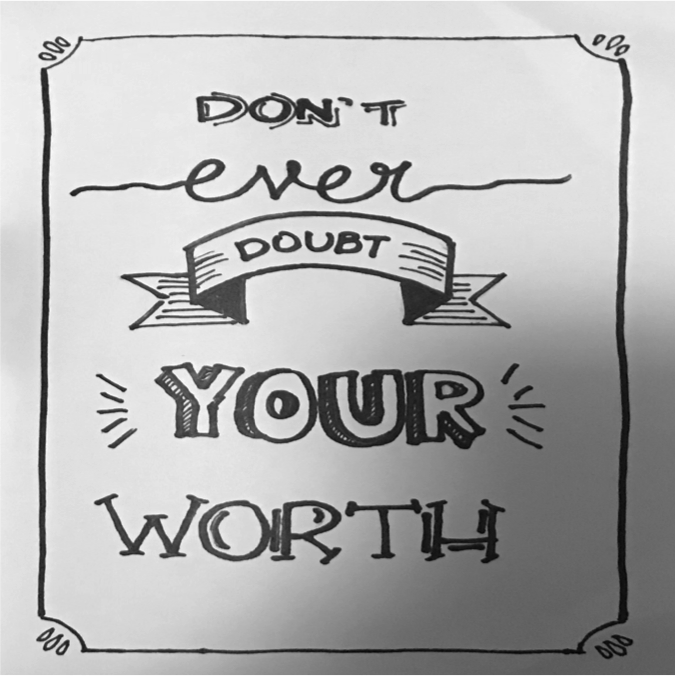 DON'T
ever
DOUBT
YOUR
WORTH